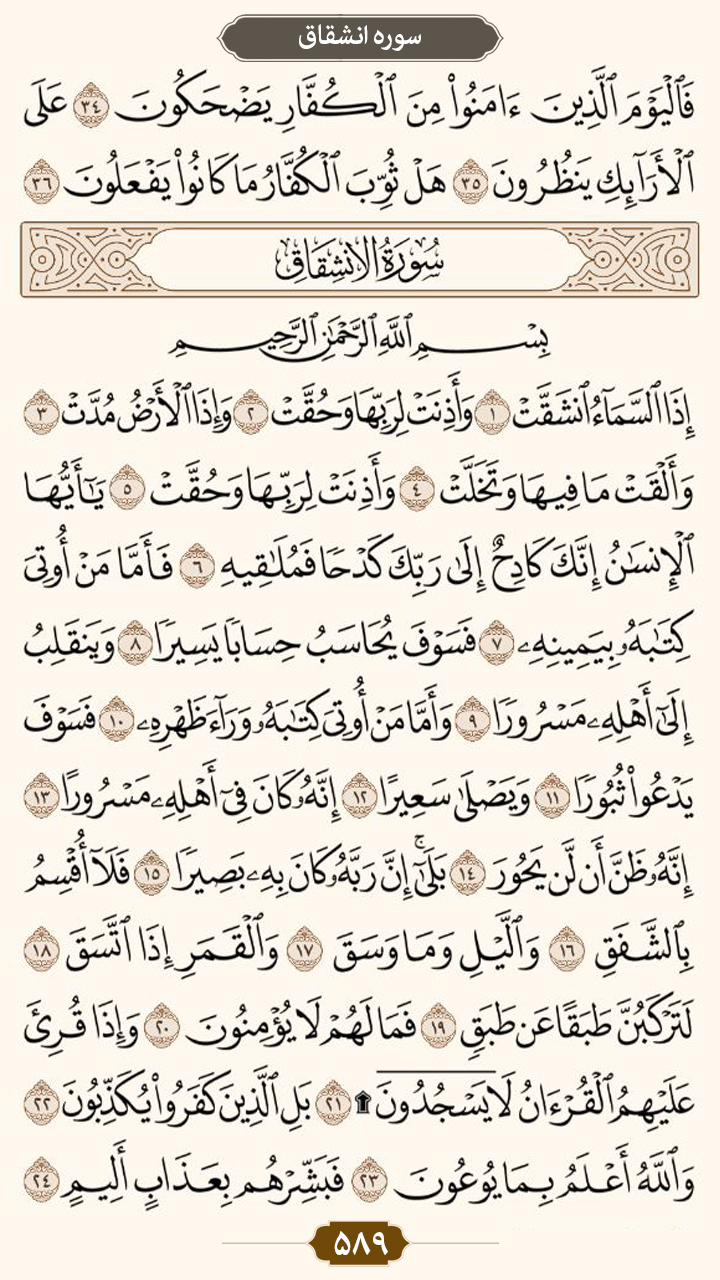 سوره انشقاق
فَٱلۡيَوۡمَ ٱلَّذِينَ ءَامَنُواْ مِنَ ٱلۡكُفَّارِ يَضۡحَكُونَ ٣٤ عَلَى
ٱلۡأَرَآئِكِ يَنظُرُونَ ٣٥ هَلۡ ثُوِّبَ ٱلۡكُفَّارُ مَا كَانُواْ يَفۡعَلُونَ ٣٦
سُورَةُ الانشِقَاقِ
بِسۡمِ ٱللَّهِ ٱلرَّحۡمَٰنِ ٱلرَّحِيمِ
إِذَا ٱلسَّمَآءُ ٱنشَقَّتۡ ١ وَأَذِنَتۡ لِرَبِّهَا وَحُقَّتۡ ٢ وَإِذَا ٱلۡأَرۡضُ مُدَّتۡ ٣
وَأَلۡقَتۡ مَا فِيهَا وَتَخَلَّتۡ ٤ وَأَذِنَتۡ لِرَبِّهَا وَحُقَّتۡ ٥ يَٰٓأَيُّهَا
ٱلۡإِنسَٰنُ إِنَّكَ كَادِحٌ إِلَىٰ رَبِّكَ كَدۡحٗا فَمُلَٰقِيهِ ٦ فَأَمَّا مَنۡ أُوتِيَ
كِتَٰبَهُۥ بِيَمِينِهِۦ ٧ فَسَوۡفَ يُحَاسَبُ حِسَابٗا يَسِيرٗا ٨ وَيَنقَلِبُ
إِلَىٰٓ أَهۡلِهِۦ مَسۡرُورٗا ٩ وَأَمَّا مَنۡ أُوتِيَ كِتَٰبَهُۥ وَرَآءَ ظَهۡرِهِۦ ١٠ فَسَوۡفَ
يَدۡعُواْ ثُبُورٗا ١١ وَيَصۡلَىٰ سَعِيرًا ١٢ إِنَّهُۥ كَانَ فِيٓ أَهۡلِهِۦ مَسۡرُورًا ١٣
إِنَّهُۥ ظَنَّ أَن لَّن يَحُورَ ١٤ بَلَىٰٓۚ إِنَّ رَبَّهُۥ كَانَ بِهِۦ بَصِيرٗا ١٥ فَلَآ أُقۡسِمُ
بِٱلشَّفَقِ ١٦ وَٱلَّيۡلِ وَمَا وَسَقَ ١٧ وَٱلۡقَمَرِ إِذَا ٱتَّسَقَ ١٨
لَتَرۡكَبُنَّ طَبَقًا عَن طَبَقٖ ١٩ فَمَا لَهُمۡ لَا يُؤۡمِنُونَ ٢٠ وَإِذَا قُرِئَ
عَلَيۡهِمُ ٱلۡقُرۡءَانُ لَا يَسۡجُدُونَۤ۩ ٢١ بَلِ ٱلَّذِينَ كَفَرُواْ يُكَذِّبُونَ ٢٢
وَٱللَّهُ أَعۡلَمُ بِمَا يُوعُونَ ٢٣ فَبَشِّرۡهُم بِعَذَابٍ أَلِيمٍ ٢٤
۵۸۹